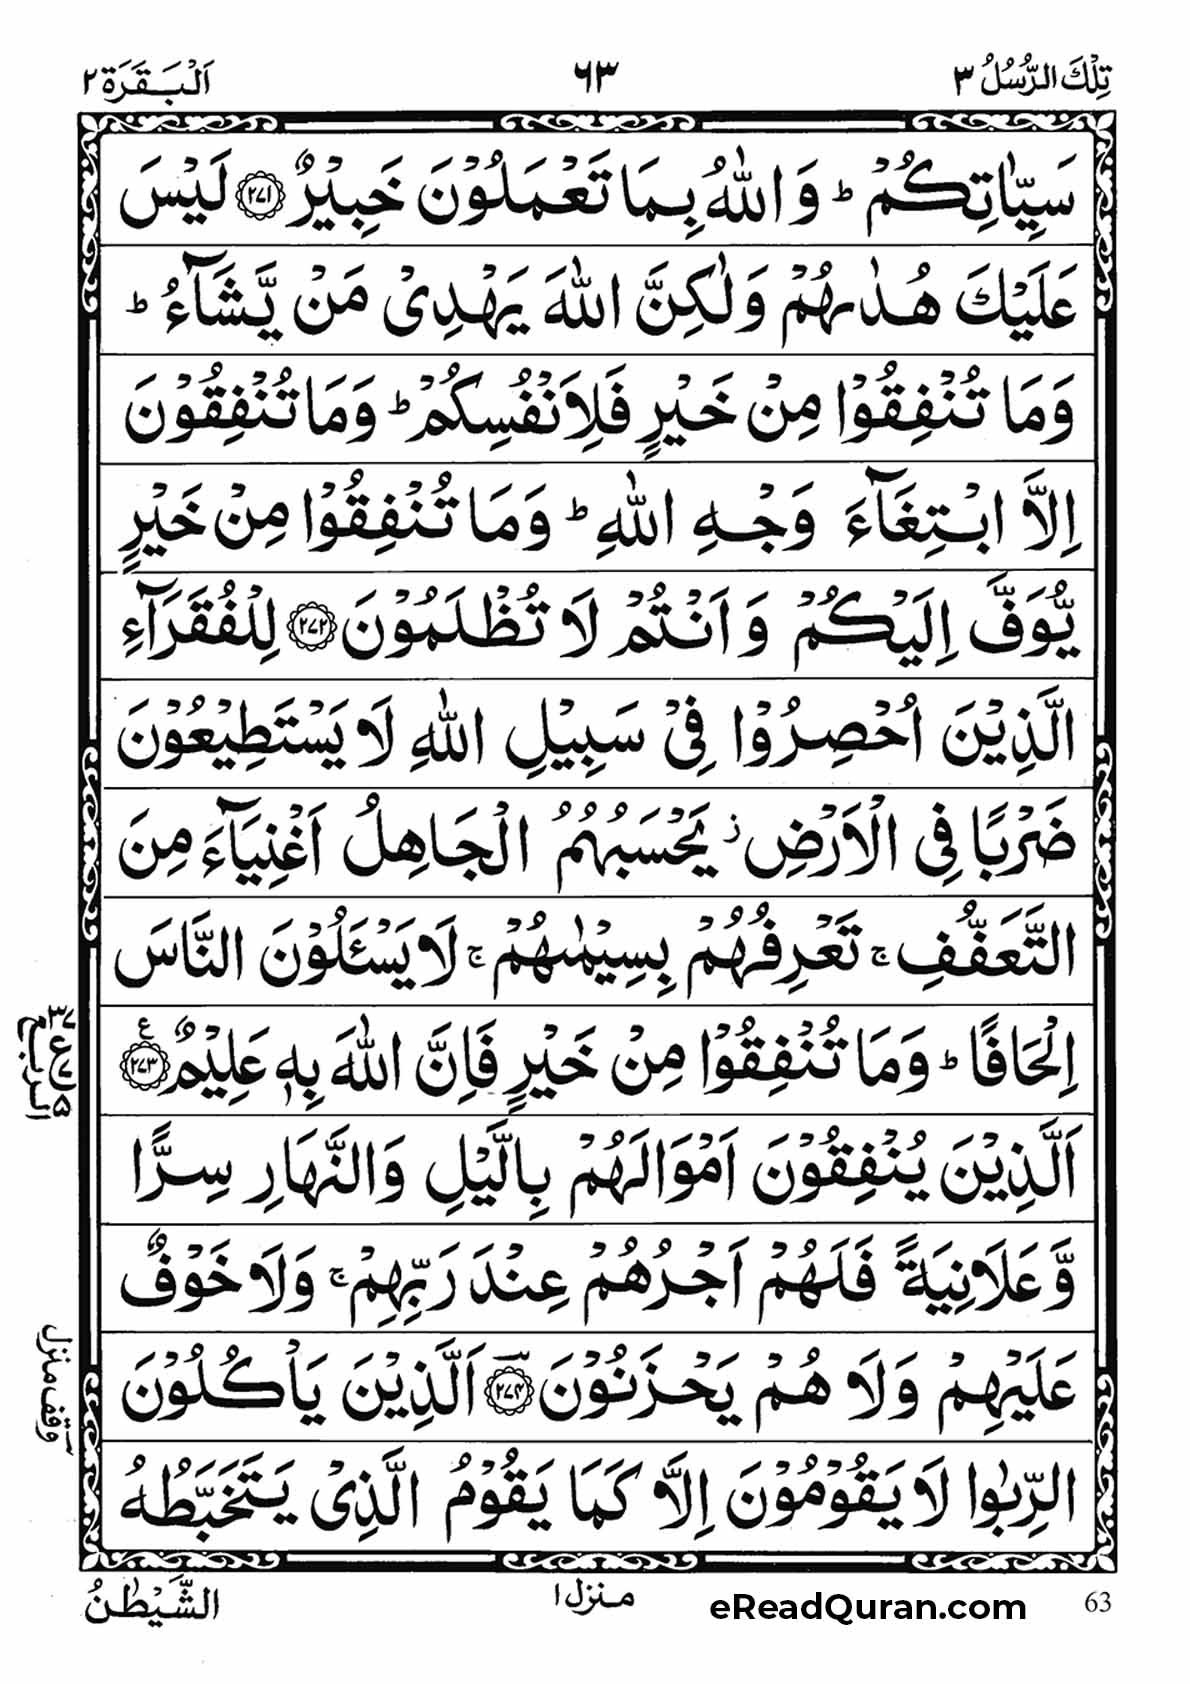 تِلْكَ الرُّسُلُ ٣
٦٣
اَلْبَقَرَة ٢
سَيِّاٰتِكُمْ ؕ وَ اللّٰهُ بِمَا تَعْمَلُوْنَ خَبِيْرٌ ﴿٢٧١﴾ لَيْسَ
عَلَيْكَ هُدٰىهُمْ وَلٰكِنَّ اللّٰهَ يَهْدِىْ مَنْ يَّشَآءُ ؕ
وَمَا تُنْفِقُوْا مِنْ خَيْرٍ فَلِاَنْفُسِكُمْ ؕ وَمَا تُنْفِقُوْنَ
اِلَّا ابْتِغَآءَ وَجْهِ اللّٰهِ ؕ وَمَا تُنْفِقُوْا مِنْ خَيْرٍ
يُّوَفَّ اِلَيْكُمْ وَ اَنْتُمْ لَا تُظْلَمُوْنَ ﴿٢٧٢﴾ لِلْفُقَرَآءِ
الَّذِيْنَ اُحْصِرُوْا فِىْ سَبِيْلِ اللّٰهِ لَا يَسْتَطِيْعُوْنَ
ضَرْبًا فِى الْاَرْضِ ز يَحْسَبُهُمُ الْجَاهِلُ اَغْنِيَآءَ مِنَ
التَّعَفُّفِ ۚ تَعْرِفُهُمْ بِسِيْمٰىهُمْ ۚ لَا يَسْـَٔلُوْنَ النَّاسَ
اِلْحَافًا ؕ وَمَا تُنْفِقُوْا مِنْ خَيْرٍ فَاِنَّ اللّٰهَ بِهٖ عَلِيْمٌ ﴿٢٧٣﴾ ع
اَلَّذِيْنَ يُنْفِقُوْنَ اَمْوَالَهُمْ بِالَّيْلِ وَالنَّهَارِ سِرًّا
وَّعَلَانِيَةً فَلَهُمْ اَجْرُهُمْ عِنْدَ رَبِّهِمْ ۚ وَلَا خَوْفٌ
عَلَيْهِمْ وَلَا هُمْ يَحْزَنُوْنَ ﴿٢٧٤﴾ اَلَّذِيْنَ يَاْكُلُوْنَ
الرِّبٰوا لَا يَقُوْمُوْنَ اِلَّا كَمَا يَقُوْمُ الَّذِىْ يَتَخَبَّطُهُ
الربع
٣٧ع٥
وقف منزل
الشَّيْطٰنُ
منزل ١
eReadQuran.com
63